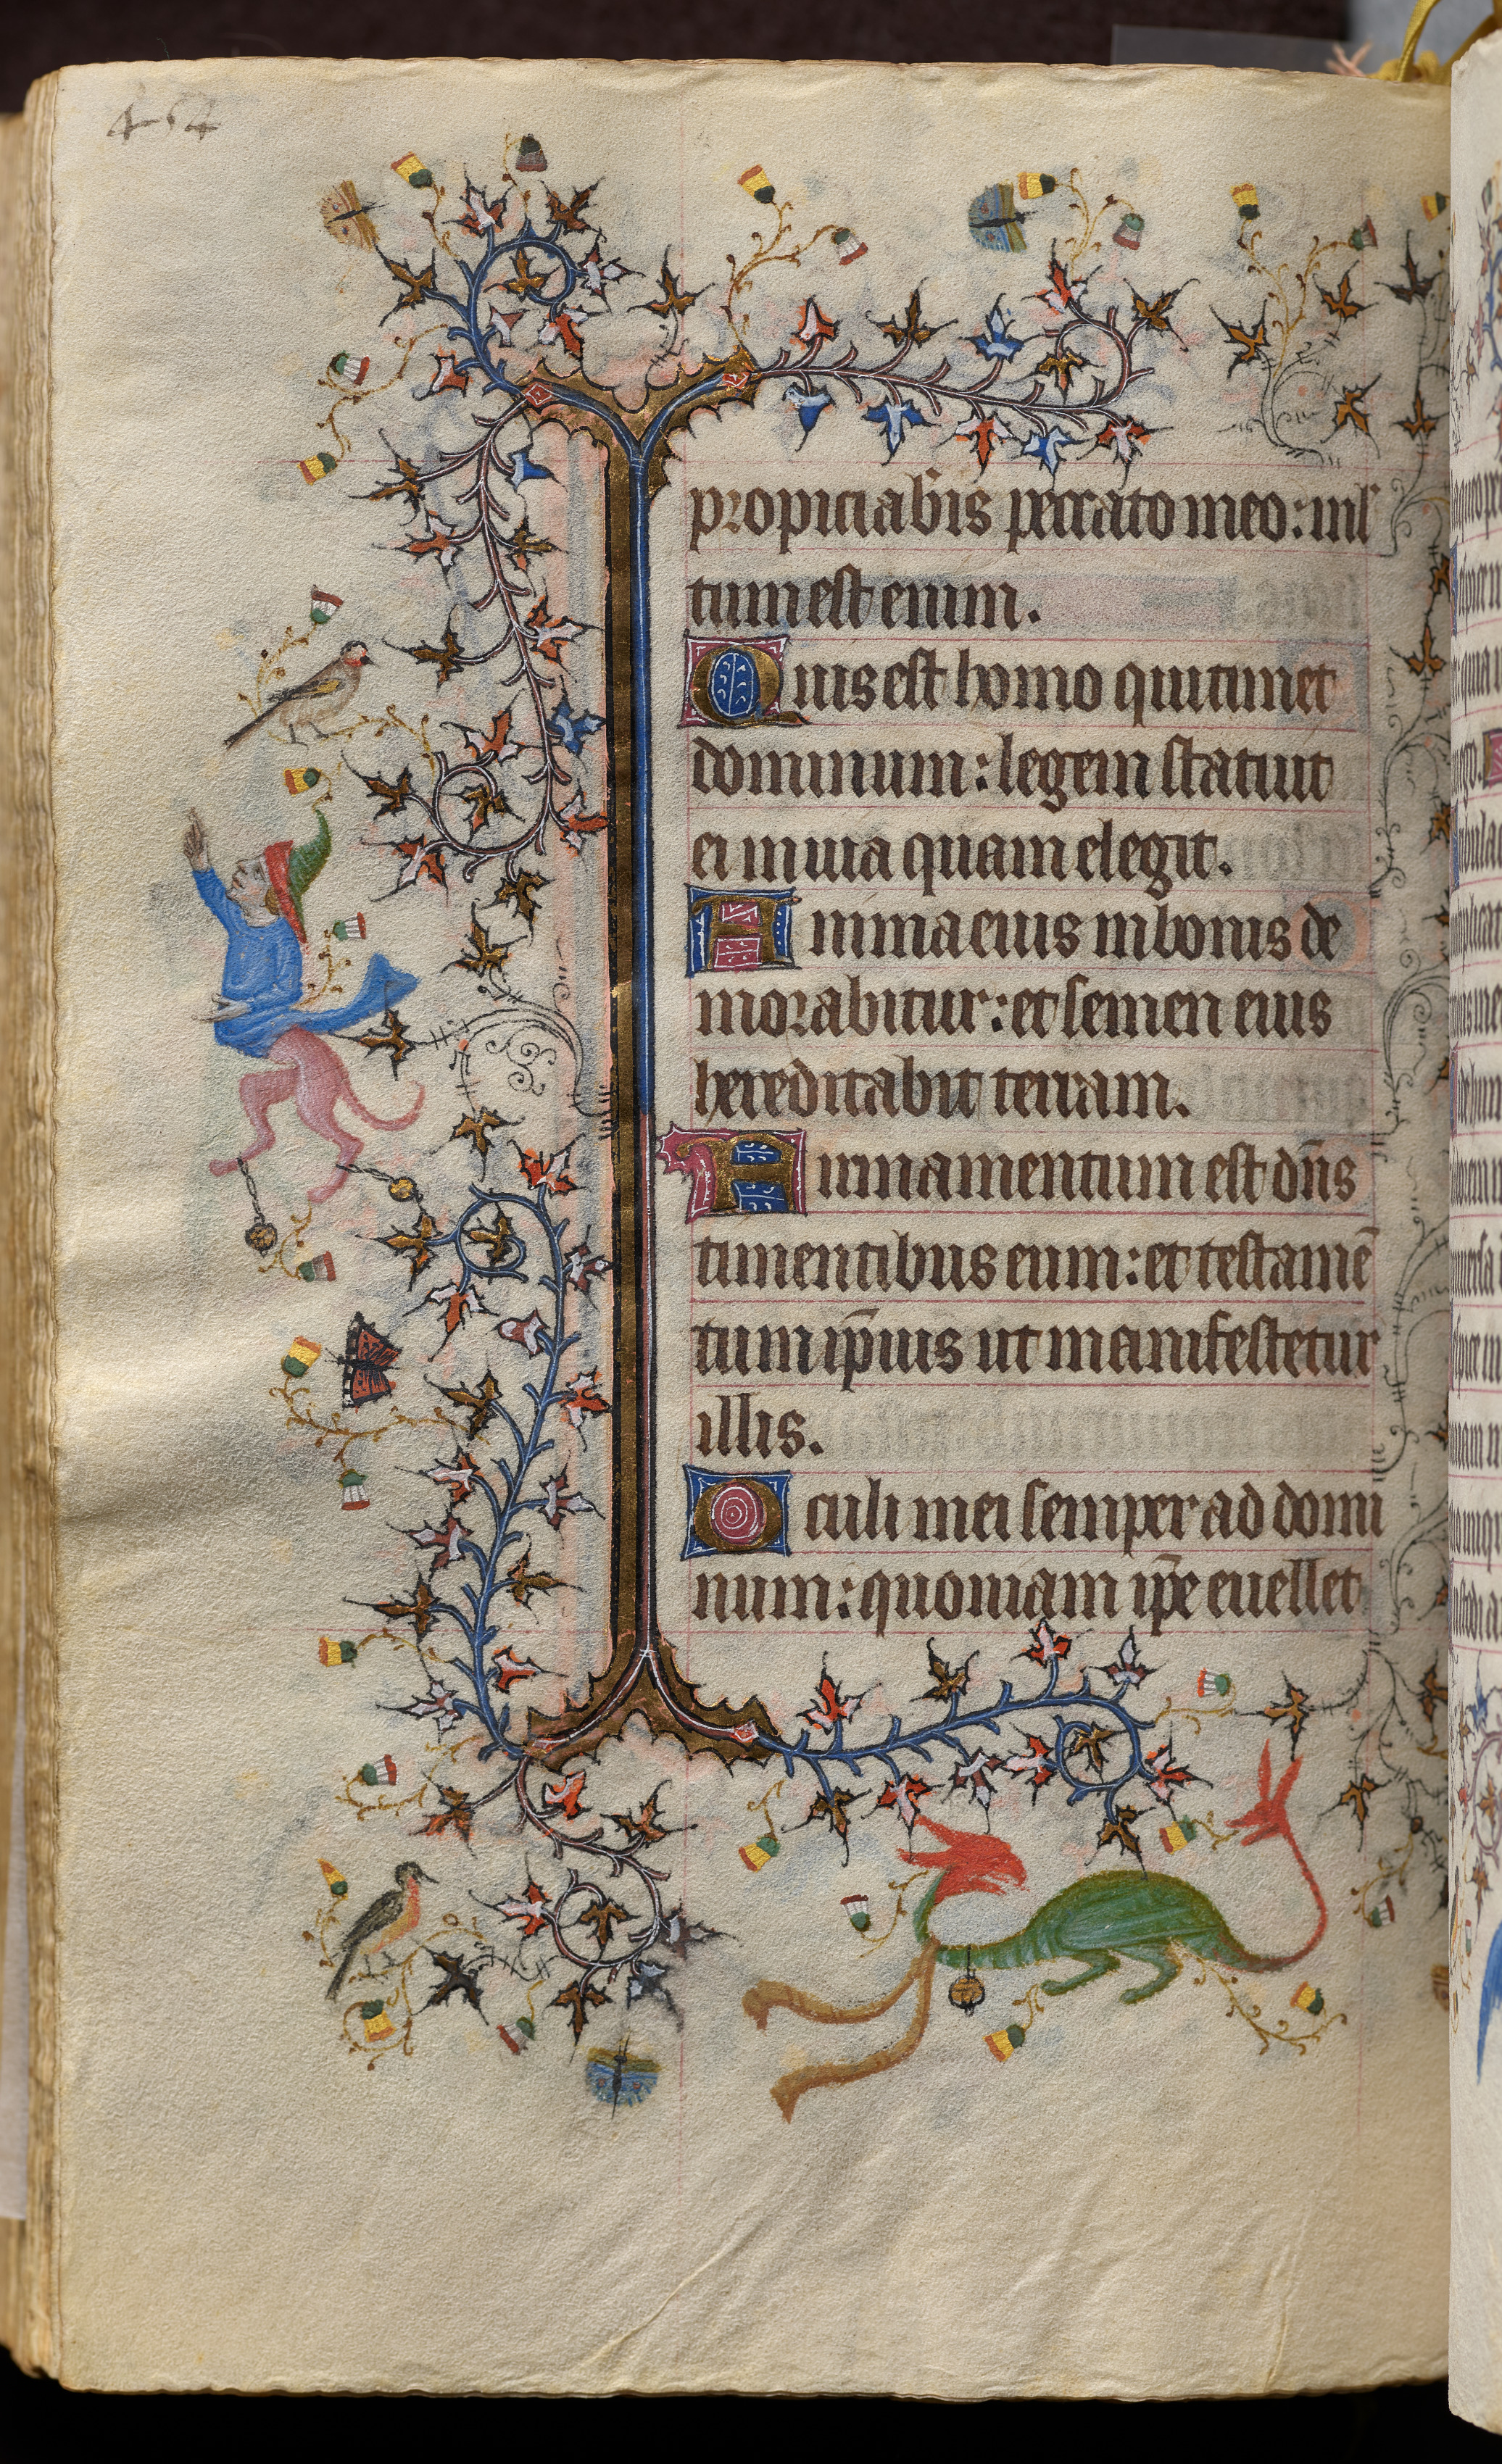 454
propiciab̄is peccato meo: ml̄
tum est enim.
Quis est homo qui timet
dominum: legem statuit
ei in uia quam elegit.
Anima eius in bonis de
morabitur: et semen eius
hereditabit terram.
Firmamentum est dn̄s
timentibus eum: et testamē
tum ip̄ius ut manifestetur
illis.
Oculi mei semper ad domi
num: quoniam ip̄e euellet